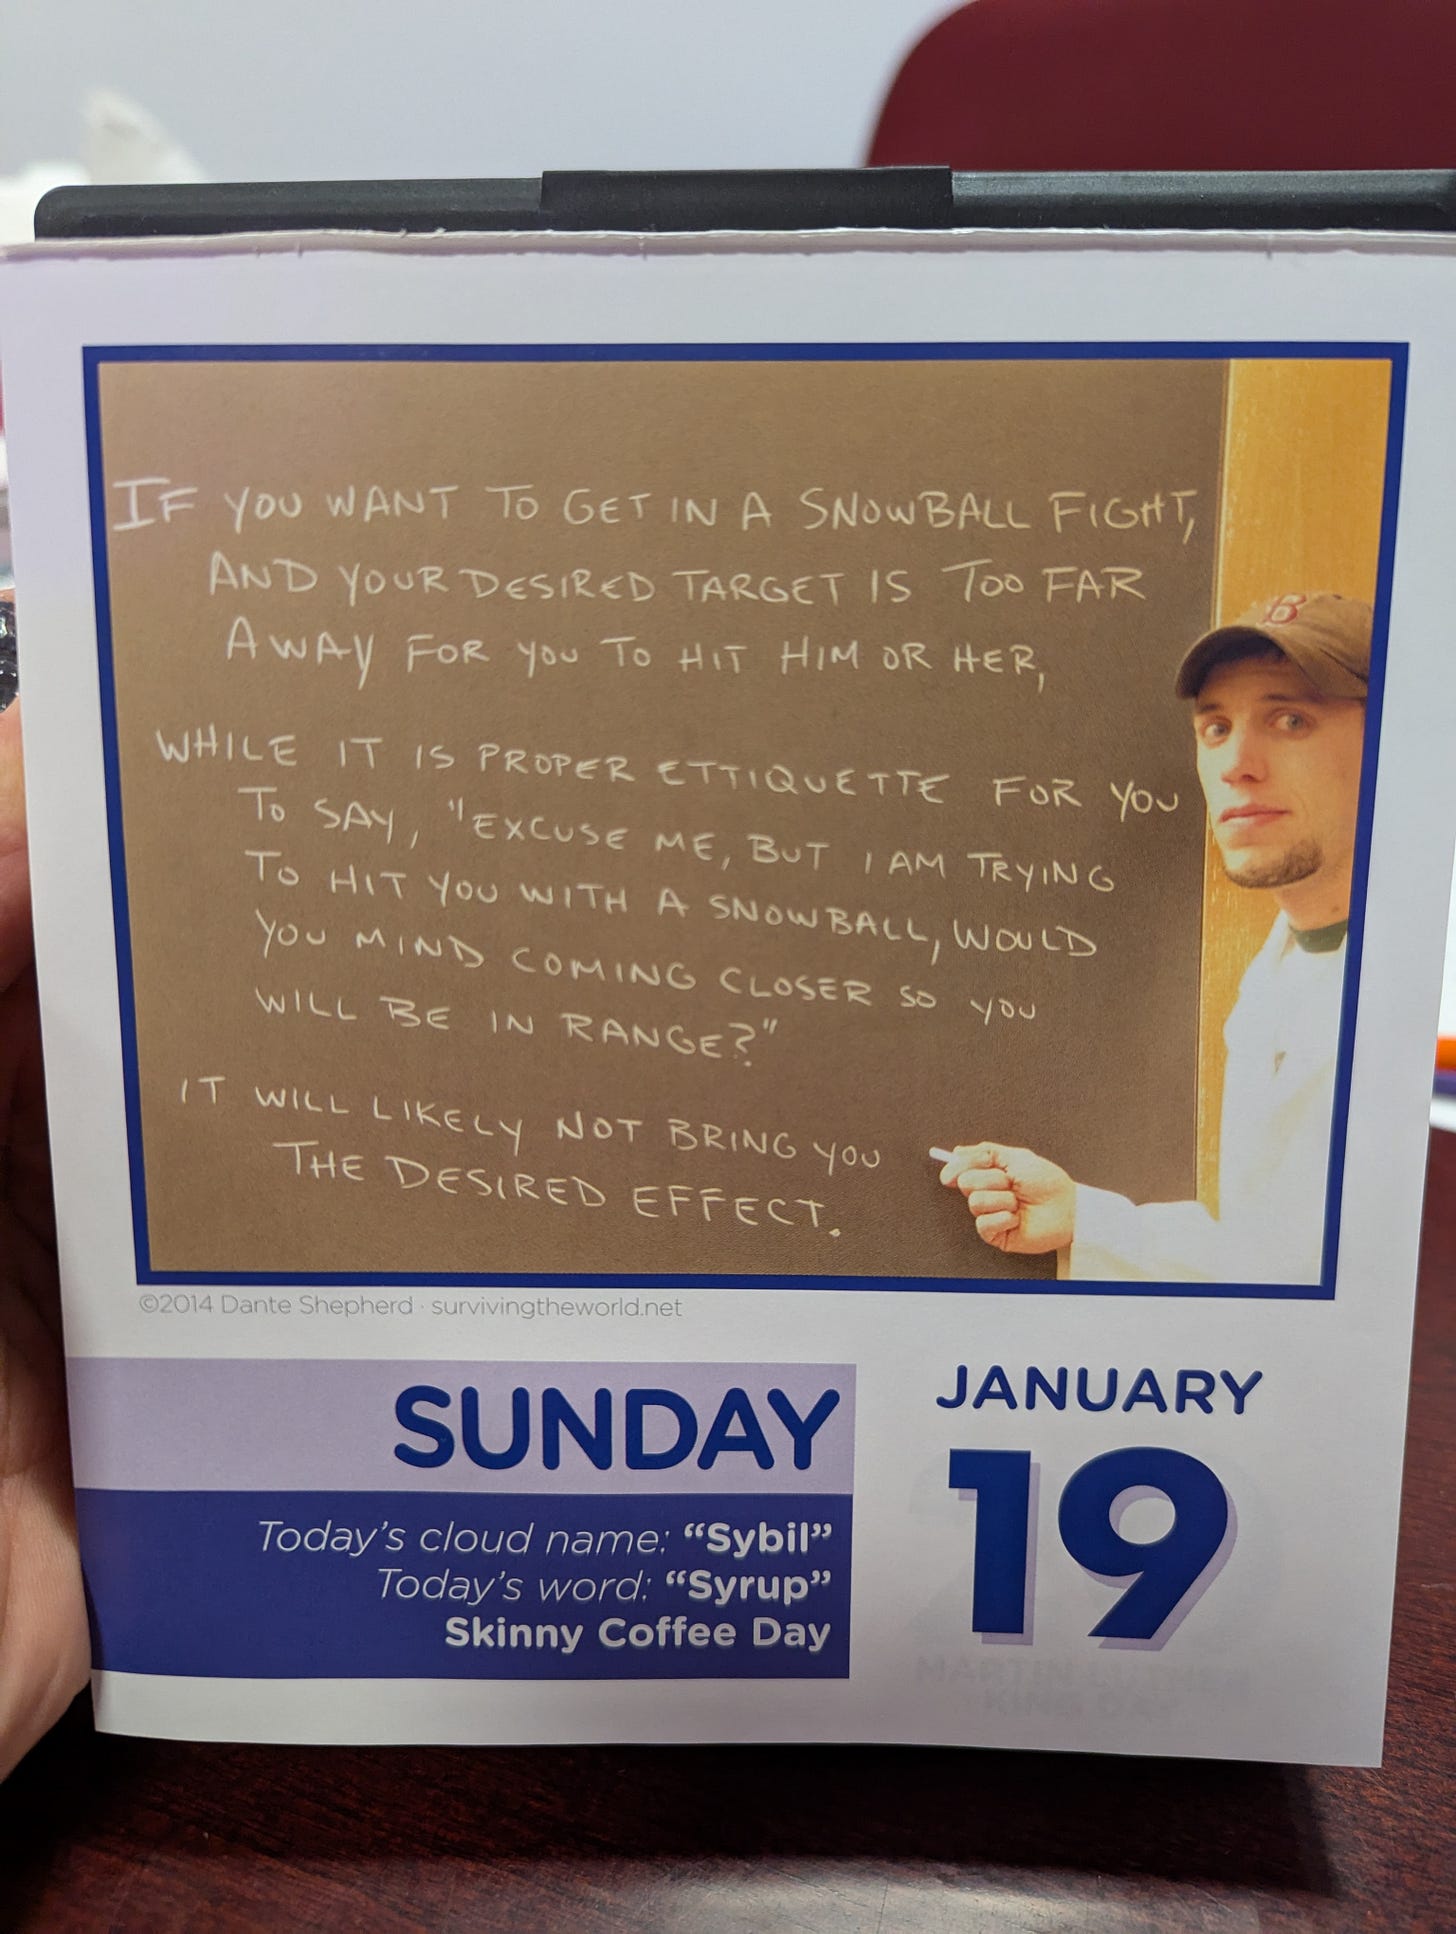 IF YOU WANT TO GET IN A SNOWBALL FIGHT,
AND YOUR DESIRED TARGET IS TOO FAR
AWAY FOR YOU TO HIT HIM OR HER,
WHILE IT IS PROPER ETTIQUETTE FOR YOU
TO SAY, "EXCUSE ME, BUT I AM TRYING
TO HIT YOU WITH A SNOWBALL, WOULD
YOU MIND COMING CLOSER SO YOU
WILL BE IN RANGE?"
IT WILL LIKELY NOT BRING YOU
THE DESIRED EFFECT.
B
©2014 Dante Shepherd · survivingtheworld.net
SUNDAY
Today's cloud name: “Sybil”
Today's word: “Syrup”
Skinny Coffee Day
JANUARY
19
MARTIN LUTHER
KING DAY